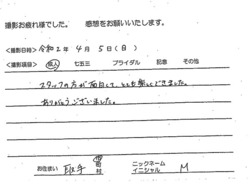 撮影お疲れ様でした。 感想をお願いいたします。
<撮影日時> 令和2年 4月 5日 (日)
<撮影項目> 成人 七五三 ブライダル 記念 その他
スタッフの方が面白くて、とても楽しくできました。
ありがとうございました。
お住まい 取手 市 町 村 ニックネーム イニシャル M